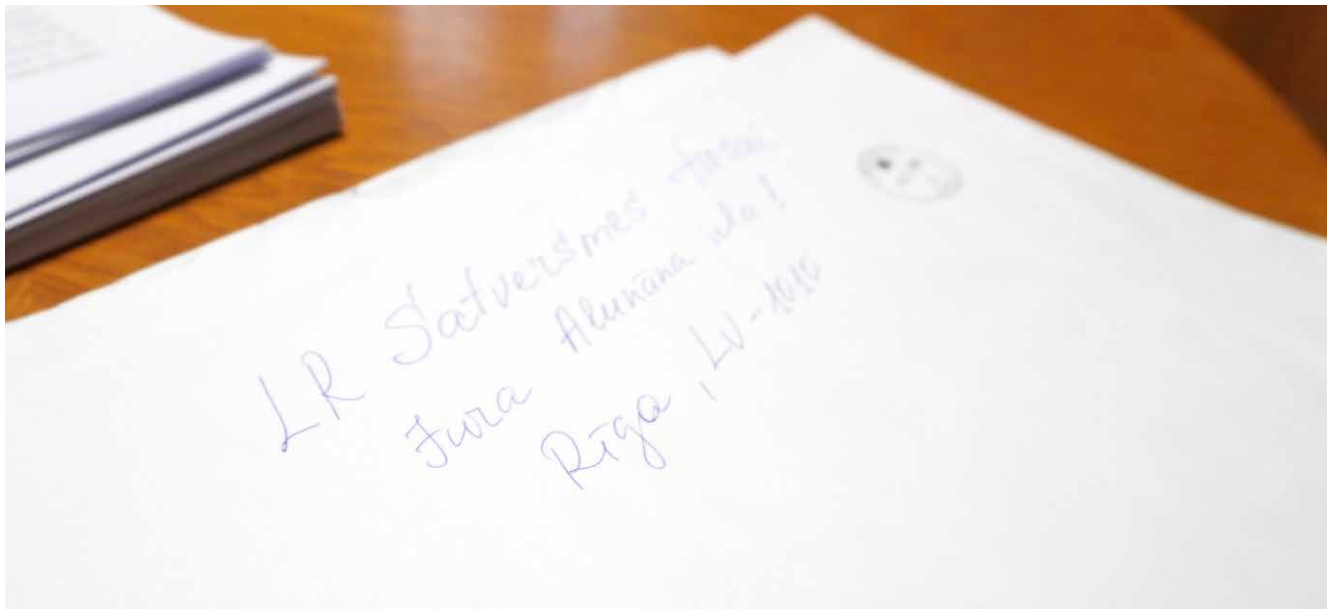 LR Satversmes tiesai
Jura Alunāna iela 1
Rīga, LV-1010